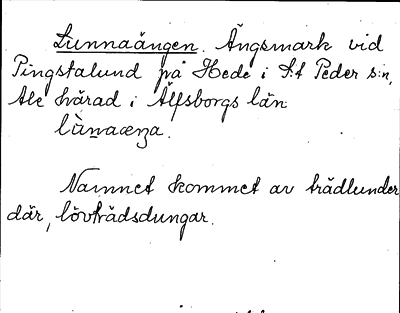 Lunnaängen. Ängsmark vid
Pingstalund på Hede i S:t Peder s:n,
Ale härad i Älfsborgs län
lùnaæŋa.
Namnet kommet av trädlunder
där, lövträdsdungar.